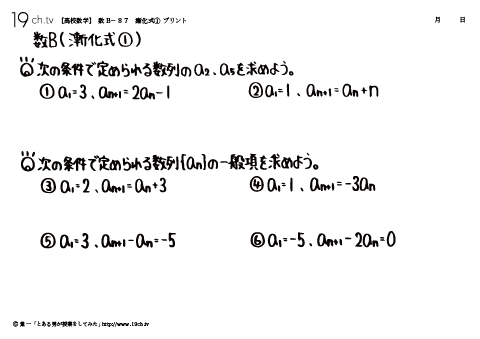 19ch.tv 【高校数学】 数B-87 漸化式① プリント 月 日
数B(漸化式①)
Q 次の条件で定められる数列のa₂、a₅を求めよう。
① a₁=3、aₙ₊₁=2aₙ-1 ② a₁=1、aₙ₊₁=aₙ+n
Q 次の条件で定められる数列{aₙ}の一般項を求めよう。
③ a₁=2、aₙ₊₁=aₙ+3 ④ a₁=1、aₙ₊₁=-3aₙ
⑤ a₁=3、aₙ₊₁-aₙ=-5 ⑥ a₁=-5、aₙ₊₁-2aₙ=0
© 葉一「とある男が授業をしてみた」http://www.19ch.tv